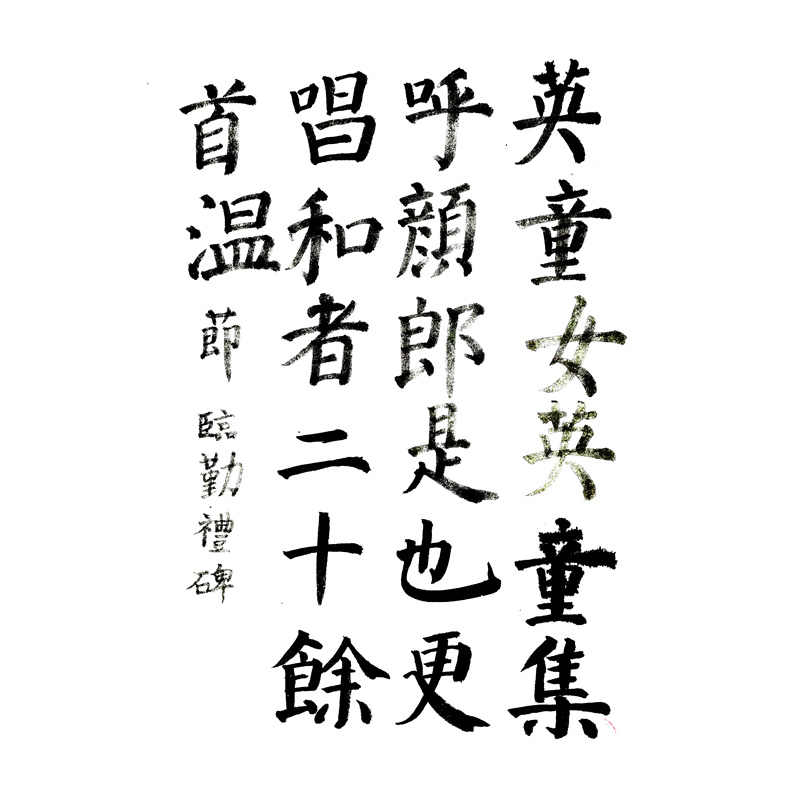 英童女英童集
呼顔郎是也更
唱和者二十餘
首温節臨勤禮碑